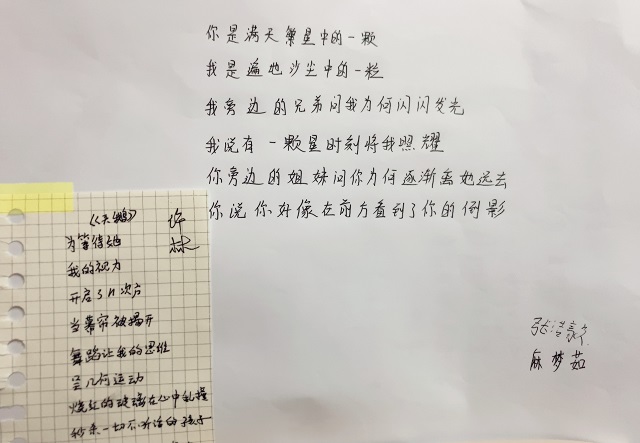 你是满天繁星中的一颗
我是遍地沙尘中的一粒
我旁边的兄弟问我为何闪闪发光
我说有一颗星时刻将我照耀
你旁边的姐妹问你为何逐渐离她远去
你说你好像在前方看到了你的倒影
张浩
麻梦茹
《天鹅》
许林
为等待她
我的视力
开启了n次方
当幕帘被揭开
舞蹈让我的思维
呈几何运动
烧红的玻璃在心中乱撞
秒杀一切不听话的孩子